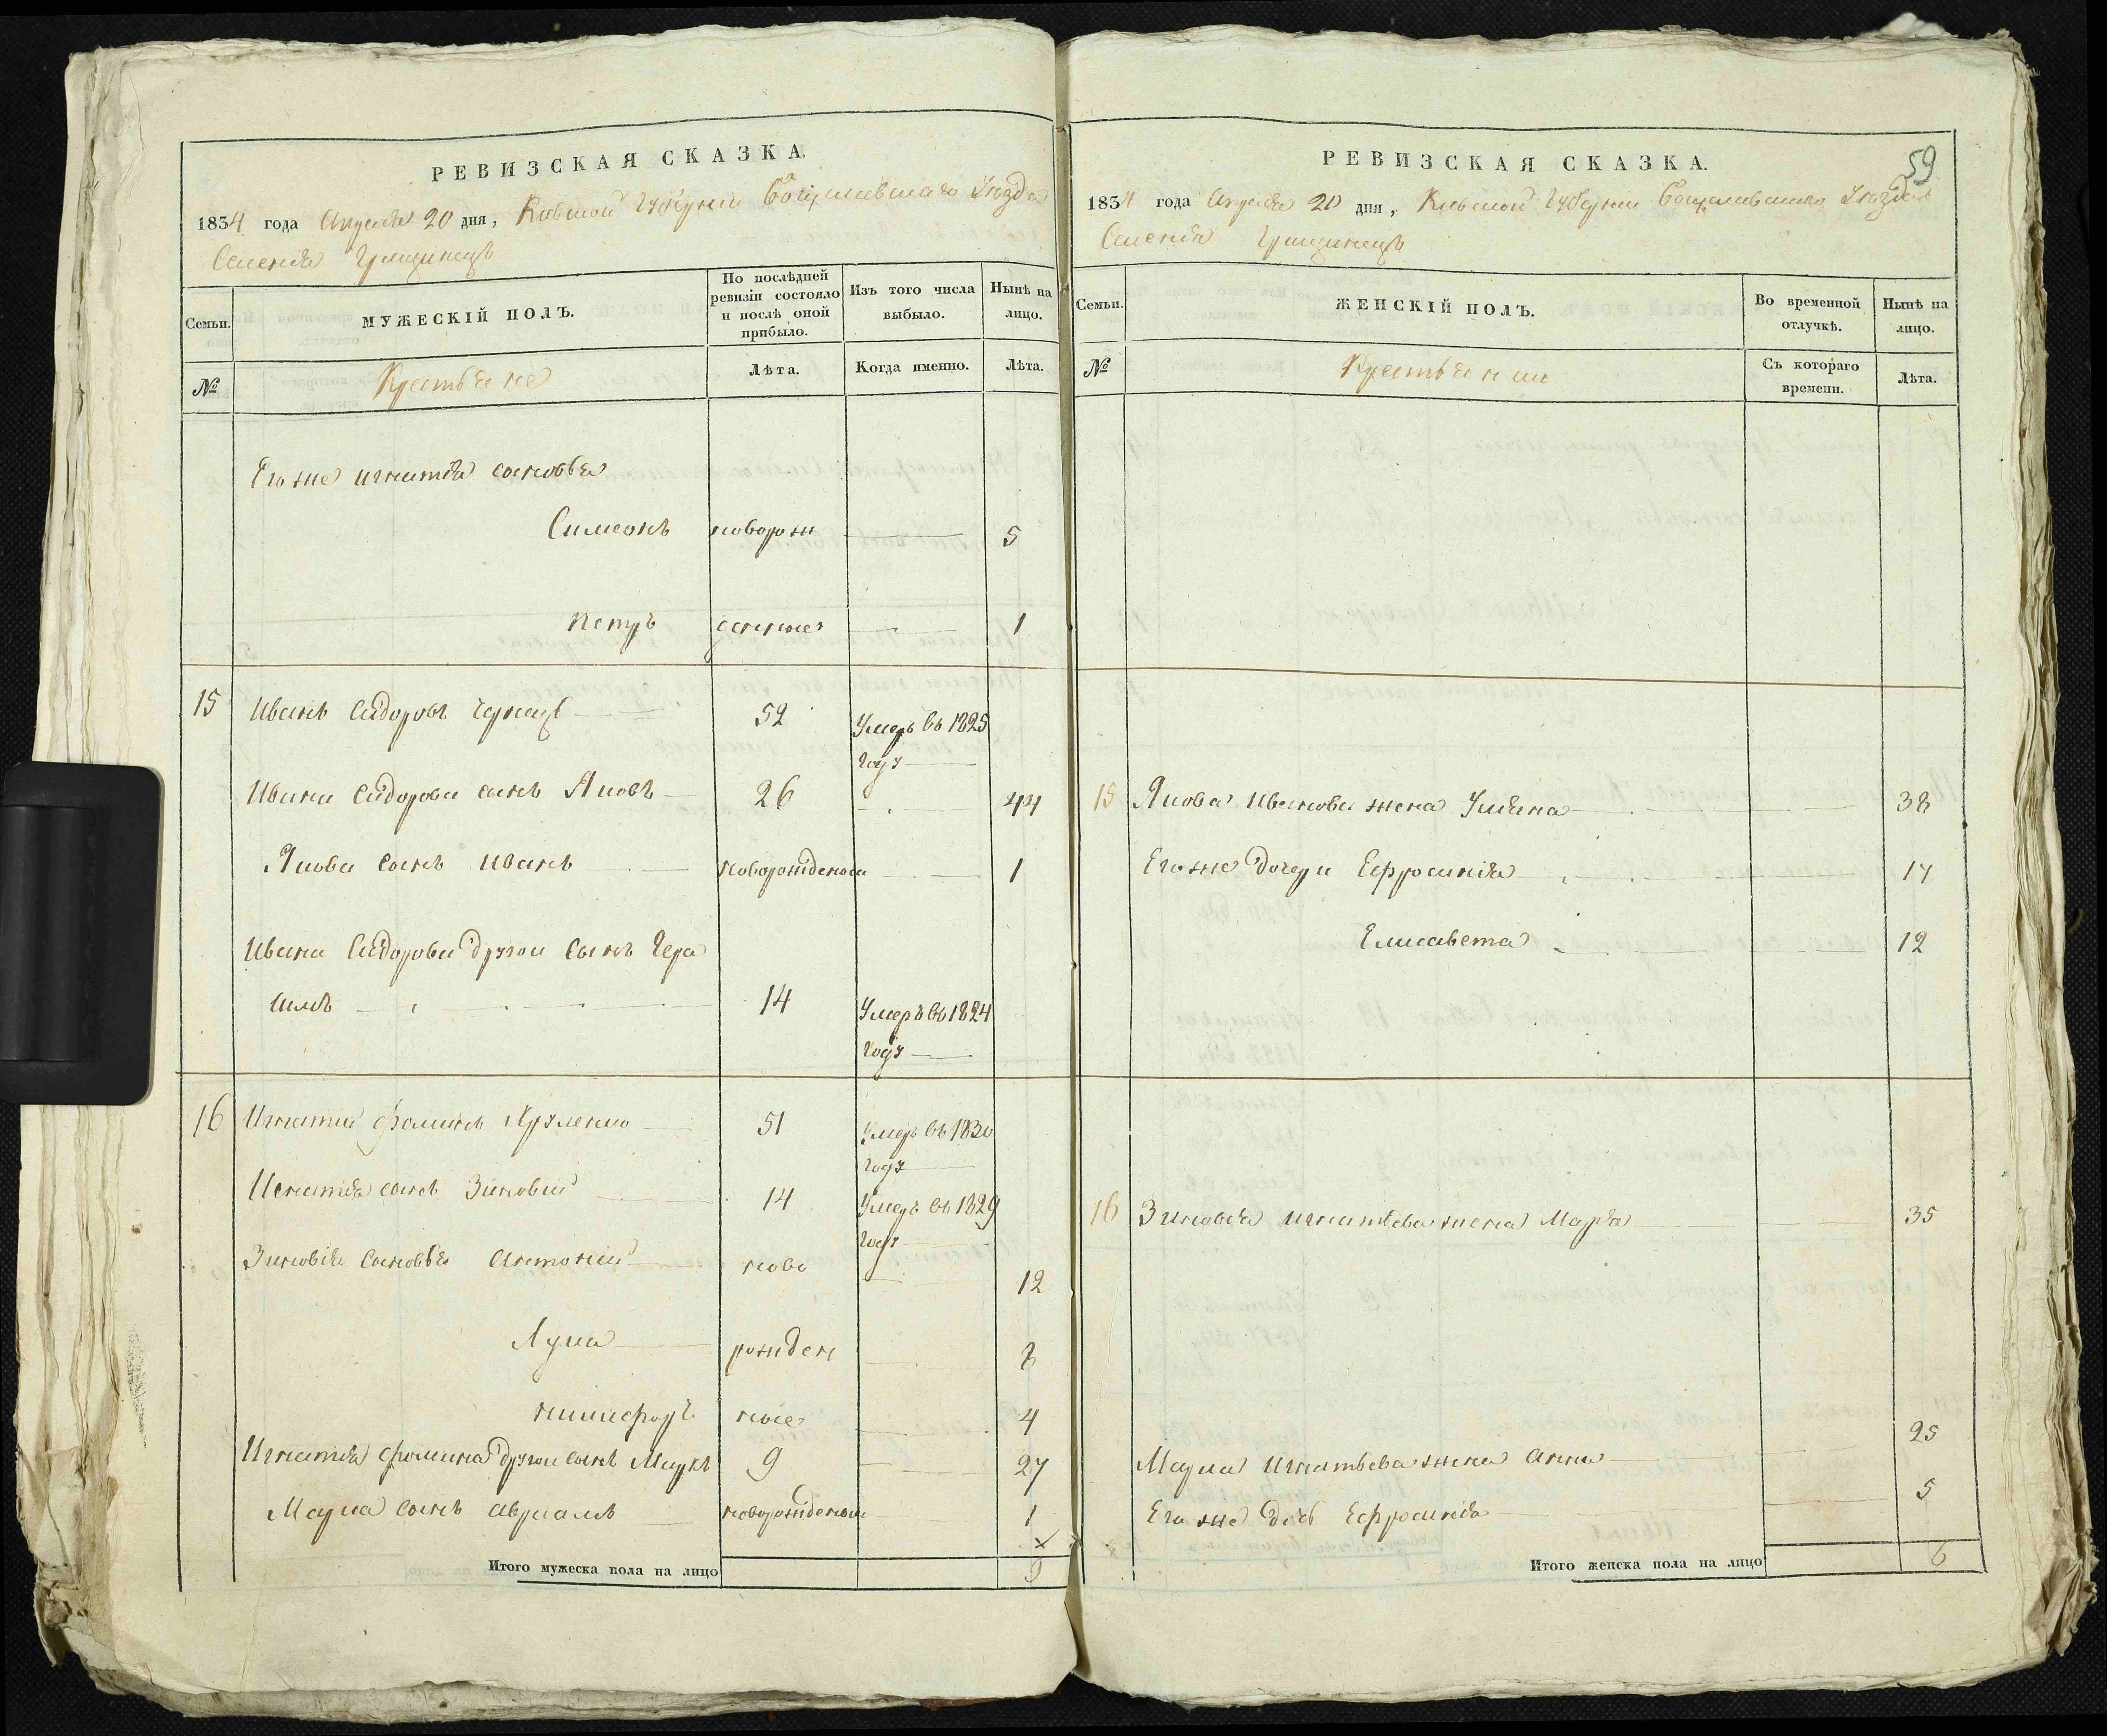 РЕВИЗСКАЯ СКАЗКА.
1834 года Апреля 20 дня, Киевской Губернии Богуславскаго Уезда
Селения
Семьи.
МУЖЕСКІЙ ПОЛЪ.
По послѣдней ревизіи состояло и послѣ оной прибыло.
Изъ того числа выбыло.
Нынѣ на лицо.
№
Крестьяне
Лѣта.
Когда именно.
Лѣта.
Его же Игнатія сыновья
Симеонъ новорож 5
Петръ денные 1
15 Иванъ Сидоровъ Чернецъ 52 Умеръ въ 1825
году
Ивана Сидорова сынъ Яковъ 26 44
Якова сынъ Иванъ новорожденой 1
Ивана Сидорова другой сынъ Гера
симъ 14 Умеръ въ 1824
году
16 Игнатий Фоминъ 51 Умеръ въ 1830
году
Игнатія сынъ Зиновий 14 Умеръ въ 1829
году
Зиновія сыновья Антоний ново 12
Лука рожден 8
Никифоръ ные 4
Игнатія Фомина другой сынъ Маркъ 9 27
Марка сынъ Авраамъ новорожденой 1
Итого мужеска пола на лицо 9
59
РЕВИЗСКАЯ СКАЗКА.
1834 года Апреля 20 дня, Киевской Губернии Богуславскаго Уезда
Селения
Семьи.
ЖЕНСКІЙ ПОЛЪ.
Во временной отлучкѣ.
Нынѣ на лицо.
№
Крестьянки
Съ котораго времени.
Лѣта.
15 Якова Иванова жена Уліяна 38
Его же дочери Ефросинія 17
Елисавета 12
16 Зиновія Игнатьева жена Марія 35
Марка Игнатьева жена Анна 25
Его же дочь Ефросинія 5
Итого женска пола на лицо 6